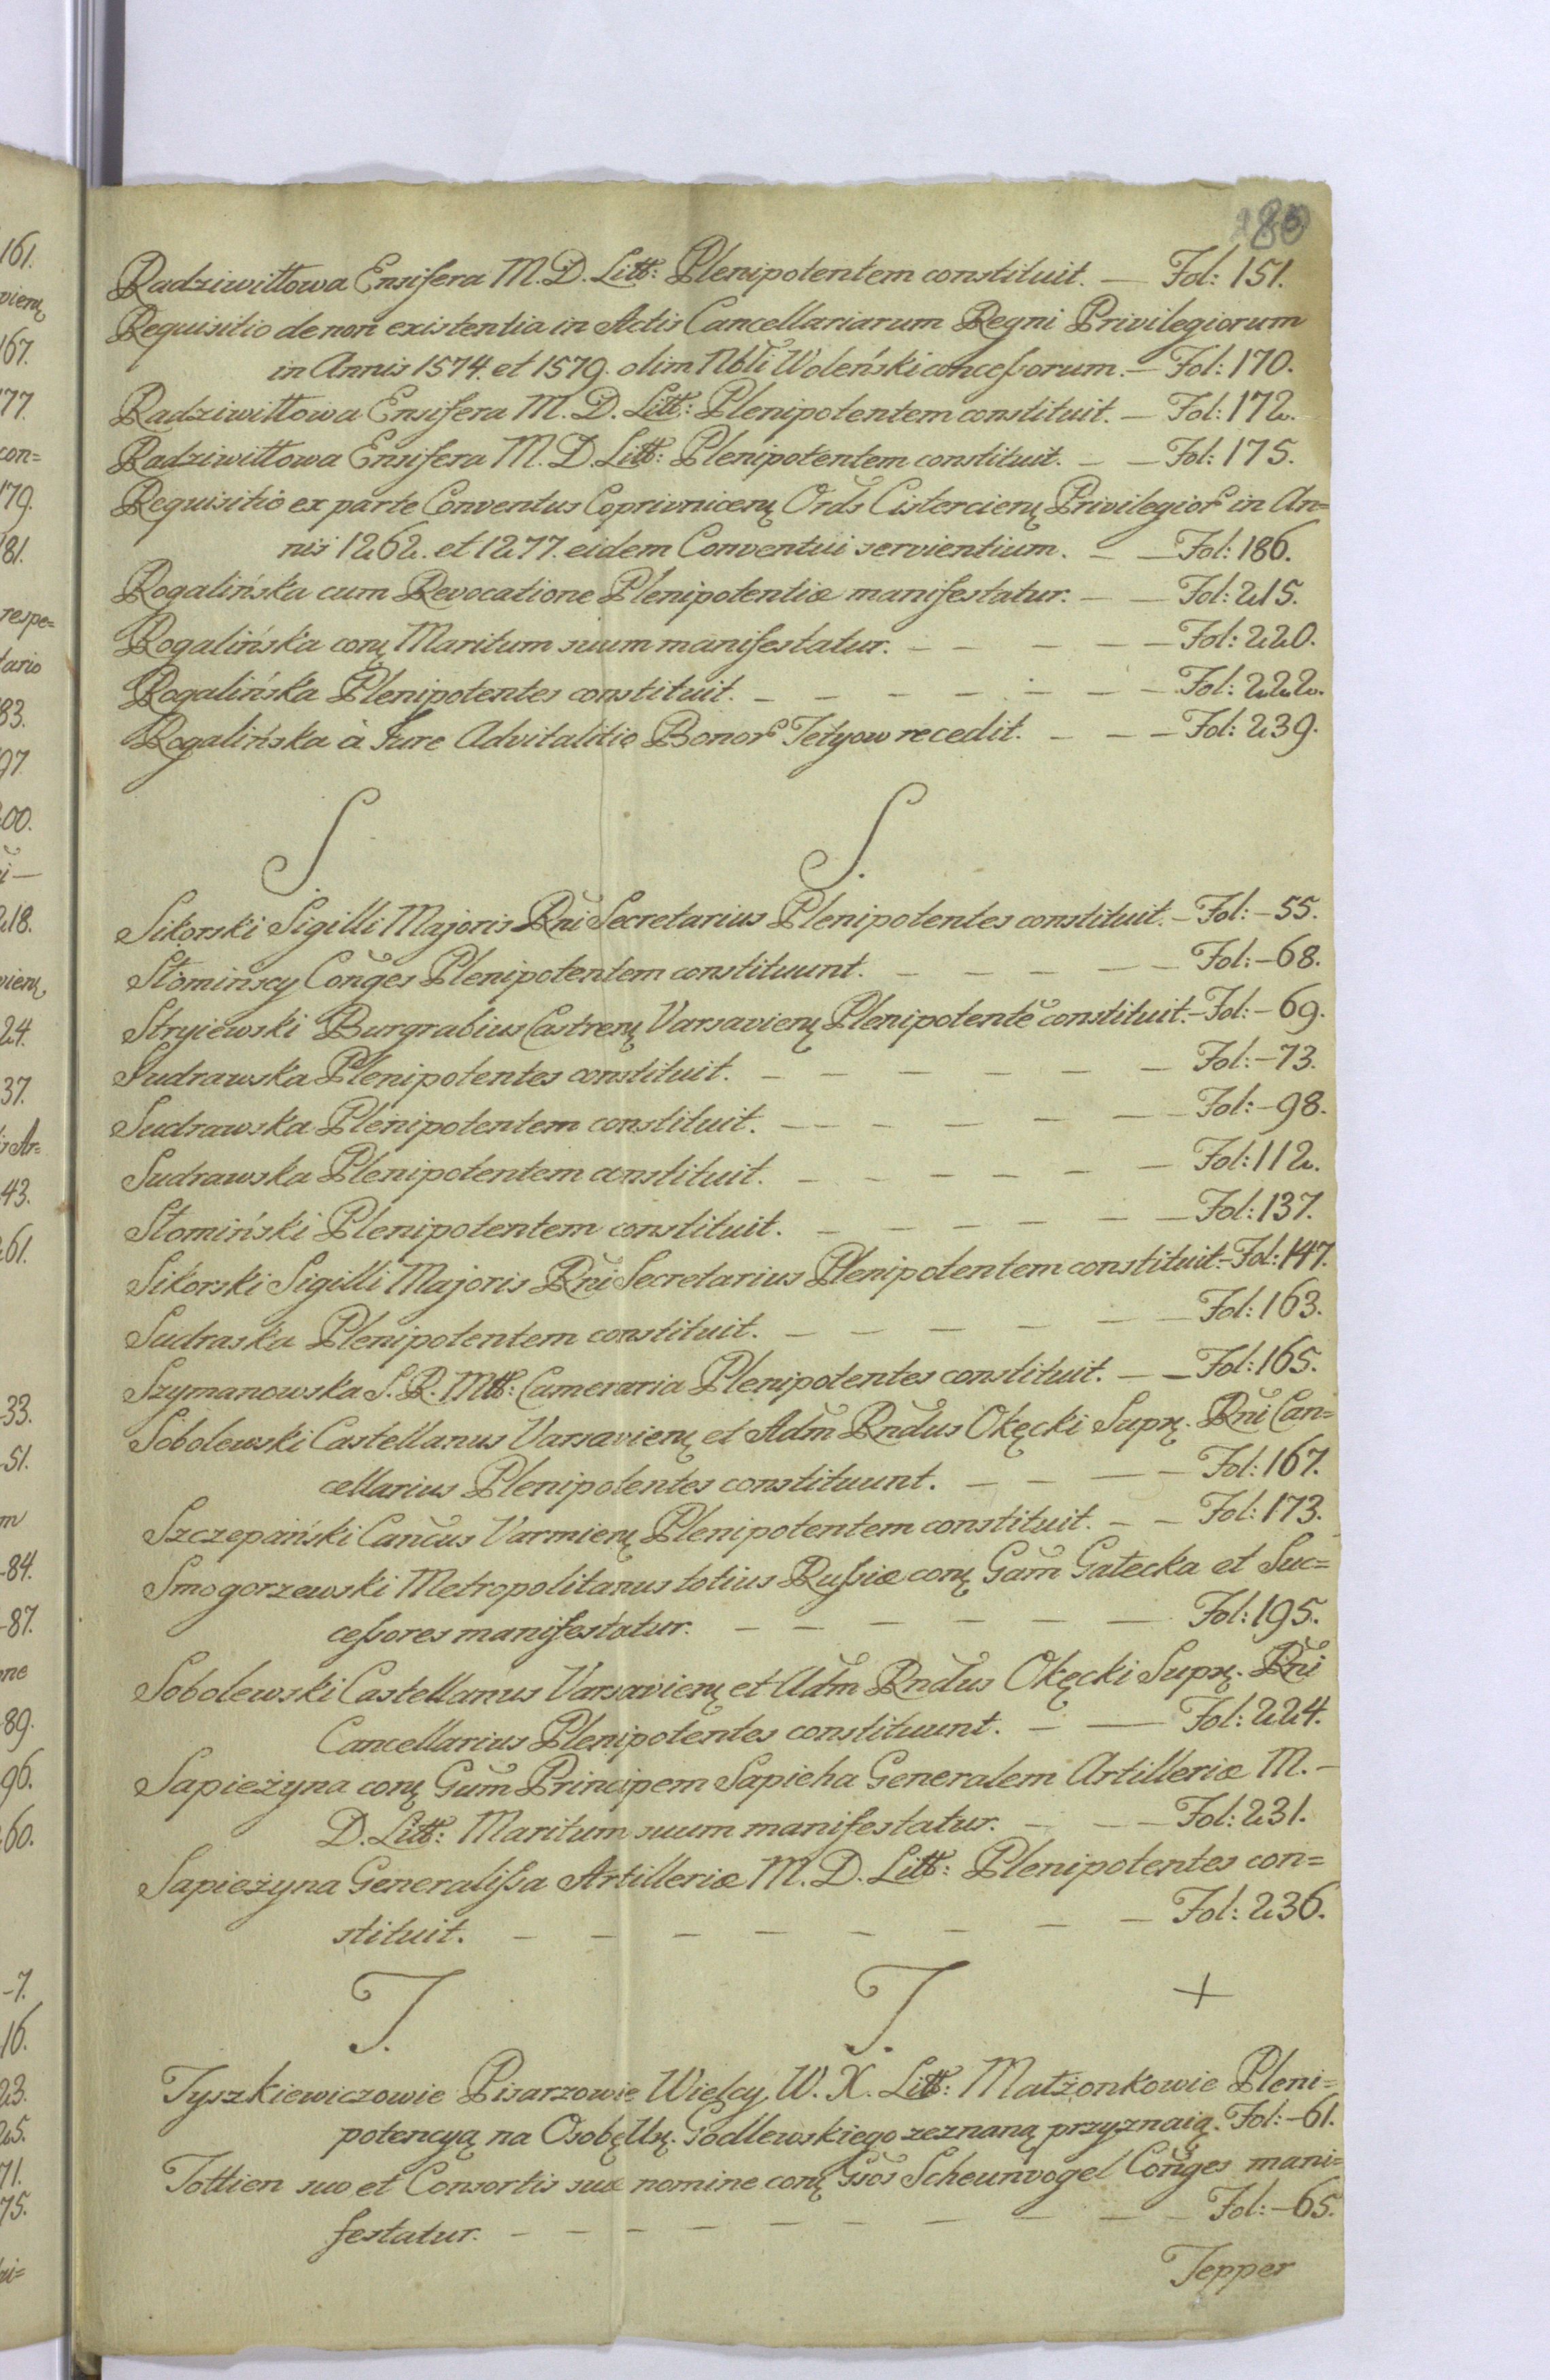 280
Radziwiłłowa Ensifera M. D. Litt: Plenipotentem constituit. — Fol: 151.
Requisitio de non existentia in Actis Cancellariarum Regni Privilegiorum
in Annis 1574. et 1579. olim Nbli Woleński concessorum. — Fol: 170.
Radziwiłłowa Ensifera M. D. Litt: Plenipotentem constituit. — Fol: 172.
Radziwiłłowa Ensifera M. D. Litt: Plenipotentem constituit. — — Fol: 175.
Requisitio ex parte Conventus Coprivniceny Ords Cistercieny Privilegior in An=
nis 1262. et 1277. eidem Conventui servientium. — — Fol: 186.
Rogalińska cum Revocatione Plenipotentiæ manifestatur. — — Fol: 215.
Rogalińska cony Maritum suum manifestatur. — — — — — Fol: 220.
Rogalińska Plenipotentes constituit. — — — — — — — Fol: 222.
Rogalińska à Jure Advitalitio Bonor Tetyow recedit. — — — Fol: 239.
S. S.
Sikorski Sigilli Majoris Rni Secretarius Plenipotentes constituit. — Fol: — 55.
Słomińscy Conges Plenipotentem constituunt. — — — — — Fol: — 68.
Stryiewski Burgrabius Castreny Varsavieny Plenipotente constituit. — Fol: — 69.
Sudrawska Plenipotentes constituit. — — — — — — — Fol: — 73.
Sudrawska Plenipotentem constituit. — — — — — — Fol: — 98.
Sudrawska Plenipotentem constituit. — — — — — — Fol: 112.
Słomiński Plenipotentem constituit. — — — — — — Fol: 137.
Sikorski Sigilli Majoris Rni Secretarius Plenipotentem constituit. — Fol: 147.
Sudraska Plenipotentem constituit. — — — — — — Fol: 163.
Szymanowska S. R. Mtt: Cameraria Plenipotentes constituit. — — Fol: 165.
Sobolewski Castellanus Varsavieny et Adm Rndus Okęcki Supry. Rni Can=
cellarius Plenipotentes constituunt. — — — — Fol: 167.
Szczepański Cancus Varmieny Plenipotentem constituit. — — Fol: 173.
Smogorzewski Metropolitanus totius Russiæ cony Gam Gałecka et Suc=
cessores manifestatur. — — — — — — Fol: 195.
Sobolewski Castellanus Varsavieny et Adm Rndus Okęcki Supry. Rni
Cancellarius Plenipotentes constituunt. — — Fol: 224.
Sapieżyna cony Gum Principem Sapieha Generalem Artilleriæ M. —
D. Litt: Maritum suum manifestatur. — — — Fol: 231.
Sapieżyna Generalissa Artilleriæ M. D. Litt: Plenipotentes con=
stituit. — — — — — — — — Fol: 236.
T. T. +
Tyszkiewiczowie Pisarzowie Wielcy W. X. Litt: Małżonkowie Pleni=
potencyą na Osobę Ur. Godlewskiego zeznaną przyznaią. Fol: — 61.
Tottien suo et Consortis suæ nomine cony Gsos Scheunvogel Conges mani=
festatur. — — — — — — — — — — Fol: — 65.
Tepper